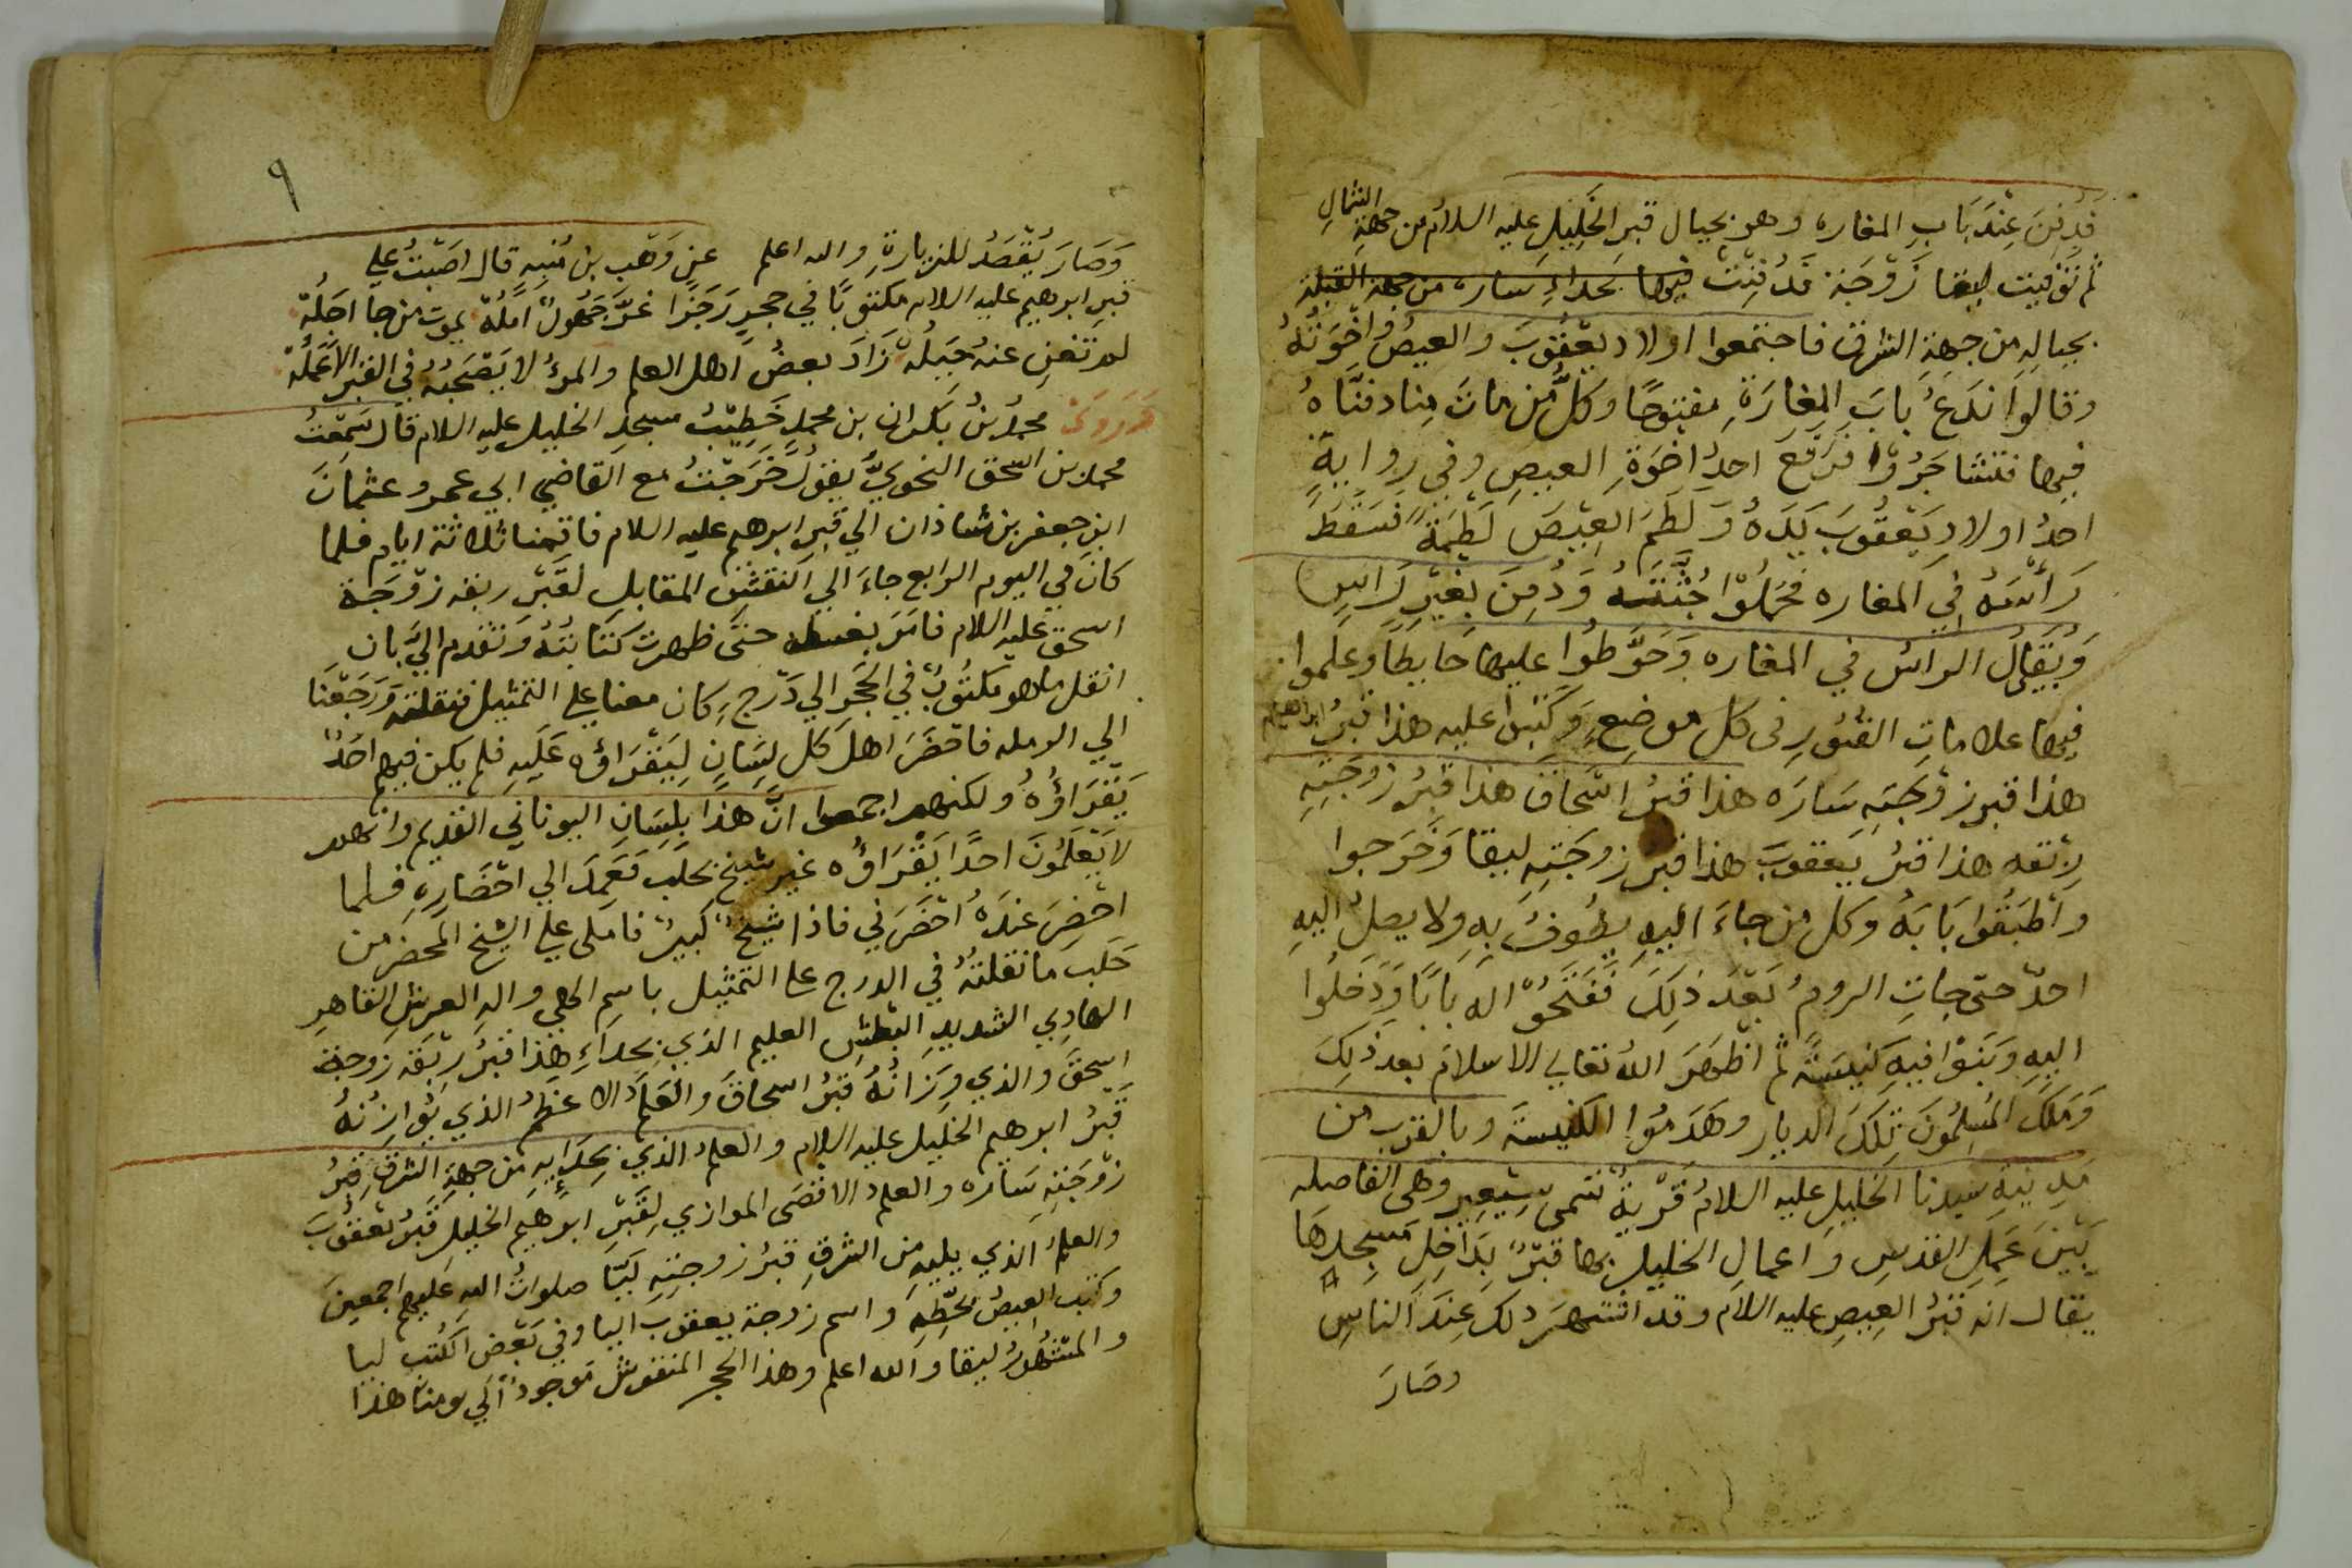 فدفن عِنْدَ بَابِ المغاره وهو بحيال قبرِ الخَلِيلِ عليه السلام من جهة الشمالِ
ثم توفيت ليقا زَوْجَته فَدُفِنَتْ فيها بحداءِ سَاره من جهة القبلة
بحيالِه من جهةِ الشرق فاجتمعوا اولاد يَعْقُوبَ والعيصُ واخْوَتُهُ
وقالوا نَدَعُ بابَ المغارَةِ مفتوحًا وكلُّ من مَاتَ مِنا دفنَّاهُ
فيها فتشَاجَرُوا فرَفَعَ احدُ اخوَةِ العيصِ وفي روايةٍ
احدُ اولادِ يَعْقُوبَ يَدَهُ وَ لَطَمَ العِيْصَ لَطْمَةً فسَقَطَ
رَأسَهُ فِي المغاره فحمَلُوْا جُثَّتَهُ وَدُفِنَ بِغَيْرِ رَاسٍ
وَبَقِيَ الراسُ في المغاره وَحَوَّطُوا عليها حَايطًا وعلموا
فيها علامَاتِ القبُورِ في كل موضِعٍ وَكَتبوا عليه هذا قبرُ ابراهيم
هذا قبر زوْجَتِهِ سَارَه هذا قبرُ اسْحَاقَ هذا قبرُ زوجَتِهِ
رِبْقه هذا قبرُ يَعقوبَ هذا قبر زوجَتِهِ ليقا وَخَرَجوا
واَطبَقُوا بَابَهُ وكل من جاءَ اليهِ يطُوفُ بِهِ ولا يصلُ اليهِ
احدٌ حتى جاتِ الرومُ بَعْدَ ذَلِكَ فَفَتَحُوْا له بَابًا وَدَخلُوا
اليهِ وَبَنَوْا فيهِ كنيسَةً ثم اظهَرَ اللهُ تعالي الاسلامَ بعد ذلِكَ
وَمَلَكَ المُسِلمُونَ تِلكَ الديار وهَدَمُوا الكنيسَةَ وبالقرب من
مَدِينةِ سيدنا الخليلِ عليهِ السلامُ قَرْيةٌ تسمى سِيْعِير وهى الفاصله
بَيْنَ عَمَلِ القدسِ وَ اعمالِ الخليلِ بها قبْرٌ بِدَاخِلِ مَسجِدِهَا
يقال انه قبْرُ العِيصِ عليه السلام وقد اشتهَرَ ذلكَ عِنَدَ الناسِ
وصَارَ
٩
وَصَارَ يُقْصَدُ للزيارةِ والله اعلم عن وَهْب بن مُنبه قال اصَبْتُ علي
قبرِ ابرهيم عليه السلام مكتوبًا في حجرٍ رَجَزًا غرَّ جَهُولاً امَلُهْ يموت من جا اجَلُهْ
لم تغنِ عنهُ حِيَلُهْ زَادَ بعضُ اهل العلم والمرؤ لا يَصْحَبُهُ في القبر الا عَمَلُهْ
وَرَوَىَ محمدُ بنُ بَكران بن محمدٍ خَطِيْبُ مسجدِ الخليل عليه السلام قال سَمِعْتُ
محمد بن اسحق النحويَّ يقول خَرَجْتُ مع القاضي ابي عمرو عثمانَ
ابنِ جعفر بن شاذان الي قبر ابرهيم عليه السلام فاقمنا ثلاثة ايام فلما
كانَ في اليوم الرابع جاءَ الي النقشِ المقابلِ لقَبْرِ ربقه زوْجَة
اسحق عليه السلام فامَرَ بغسله حتى ظهرت كتابتُهُ وَتقدم اليَّ بان
انقل ما هو مكتُوبٌ في الحَجر الي دَرْجٍ كان معنا علي التمثيل فنقلته وَرَجَعْنَا
الي الرمله فاحْضَرَ اهلَ كل لِسَانٍ لِيَقْرَاؤه عَلَيهِ فلم يكن فيهم احَدٌ
يَقْرَاؤُهُ ولكنهم اجمعوا انَّ هذَا بلِسَانِ اليوناني القديم وانهم
لا يَعْلَمُونَ احدًا يَقْرَاؤُه غير شيخ بحلب فَعَمِدَ الي احْضَارِهِ فلما
احْضِرَ عندَهُ احْضَرَني فاذا شيخٌ كبيرٌ فاملى علي الشيخ المحضر من
حَلب ما نقلتُهُ في الدرج على التمثيل باسم الهي واله العرش القاهرِ
الهادِي الشديدِ البَطشِ العليم الذي بحداءِ هذا قبرُ رِبْقَه زوجة
اسحقَ والذي وِزانُهُ قبْرُ اسحاقَ والعَلمُ الاعظمُ الذي يُوازنُهُ
قَبْرُ ابرهيم الخليل عليه السلام والعلمُ الذي بحِدَايِهِ من جهةِ الشرقِ قبرُ
زوْجَتِهِ سَاره والعلمُ الاقصَى الموازي لِقَبْرِ ابرهيم الخليل قبْرُ يَعْقُوبَ
والعلمُ الَذي يليهِ من الشرقِ قبرُ زوجتِهِ لَيَّا صلواتُ الله عليهم اجمعين
وكتبَ العيصُ بخطِّهِ وَ اسم زوجة يعقوب اليا وفي بَعْضِ الكتب ليا
والمشْهُورُ ليقا والله اعلم وهذا الحجر المنقوش مَوجودٌ الي يومنا هذا